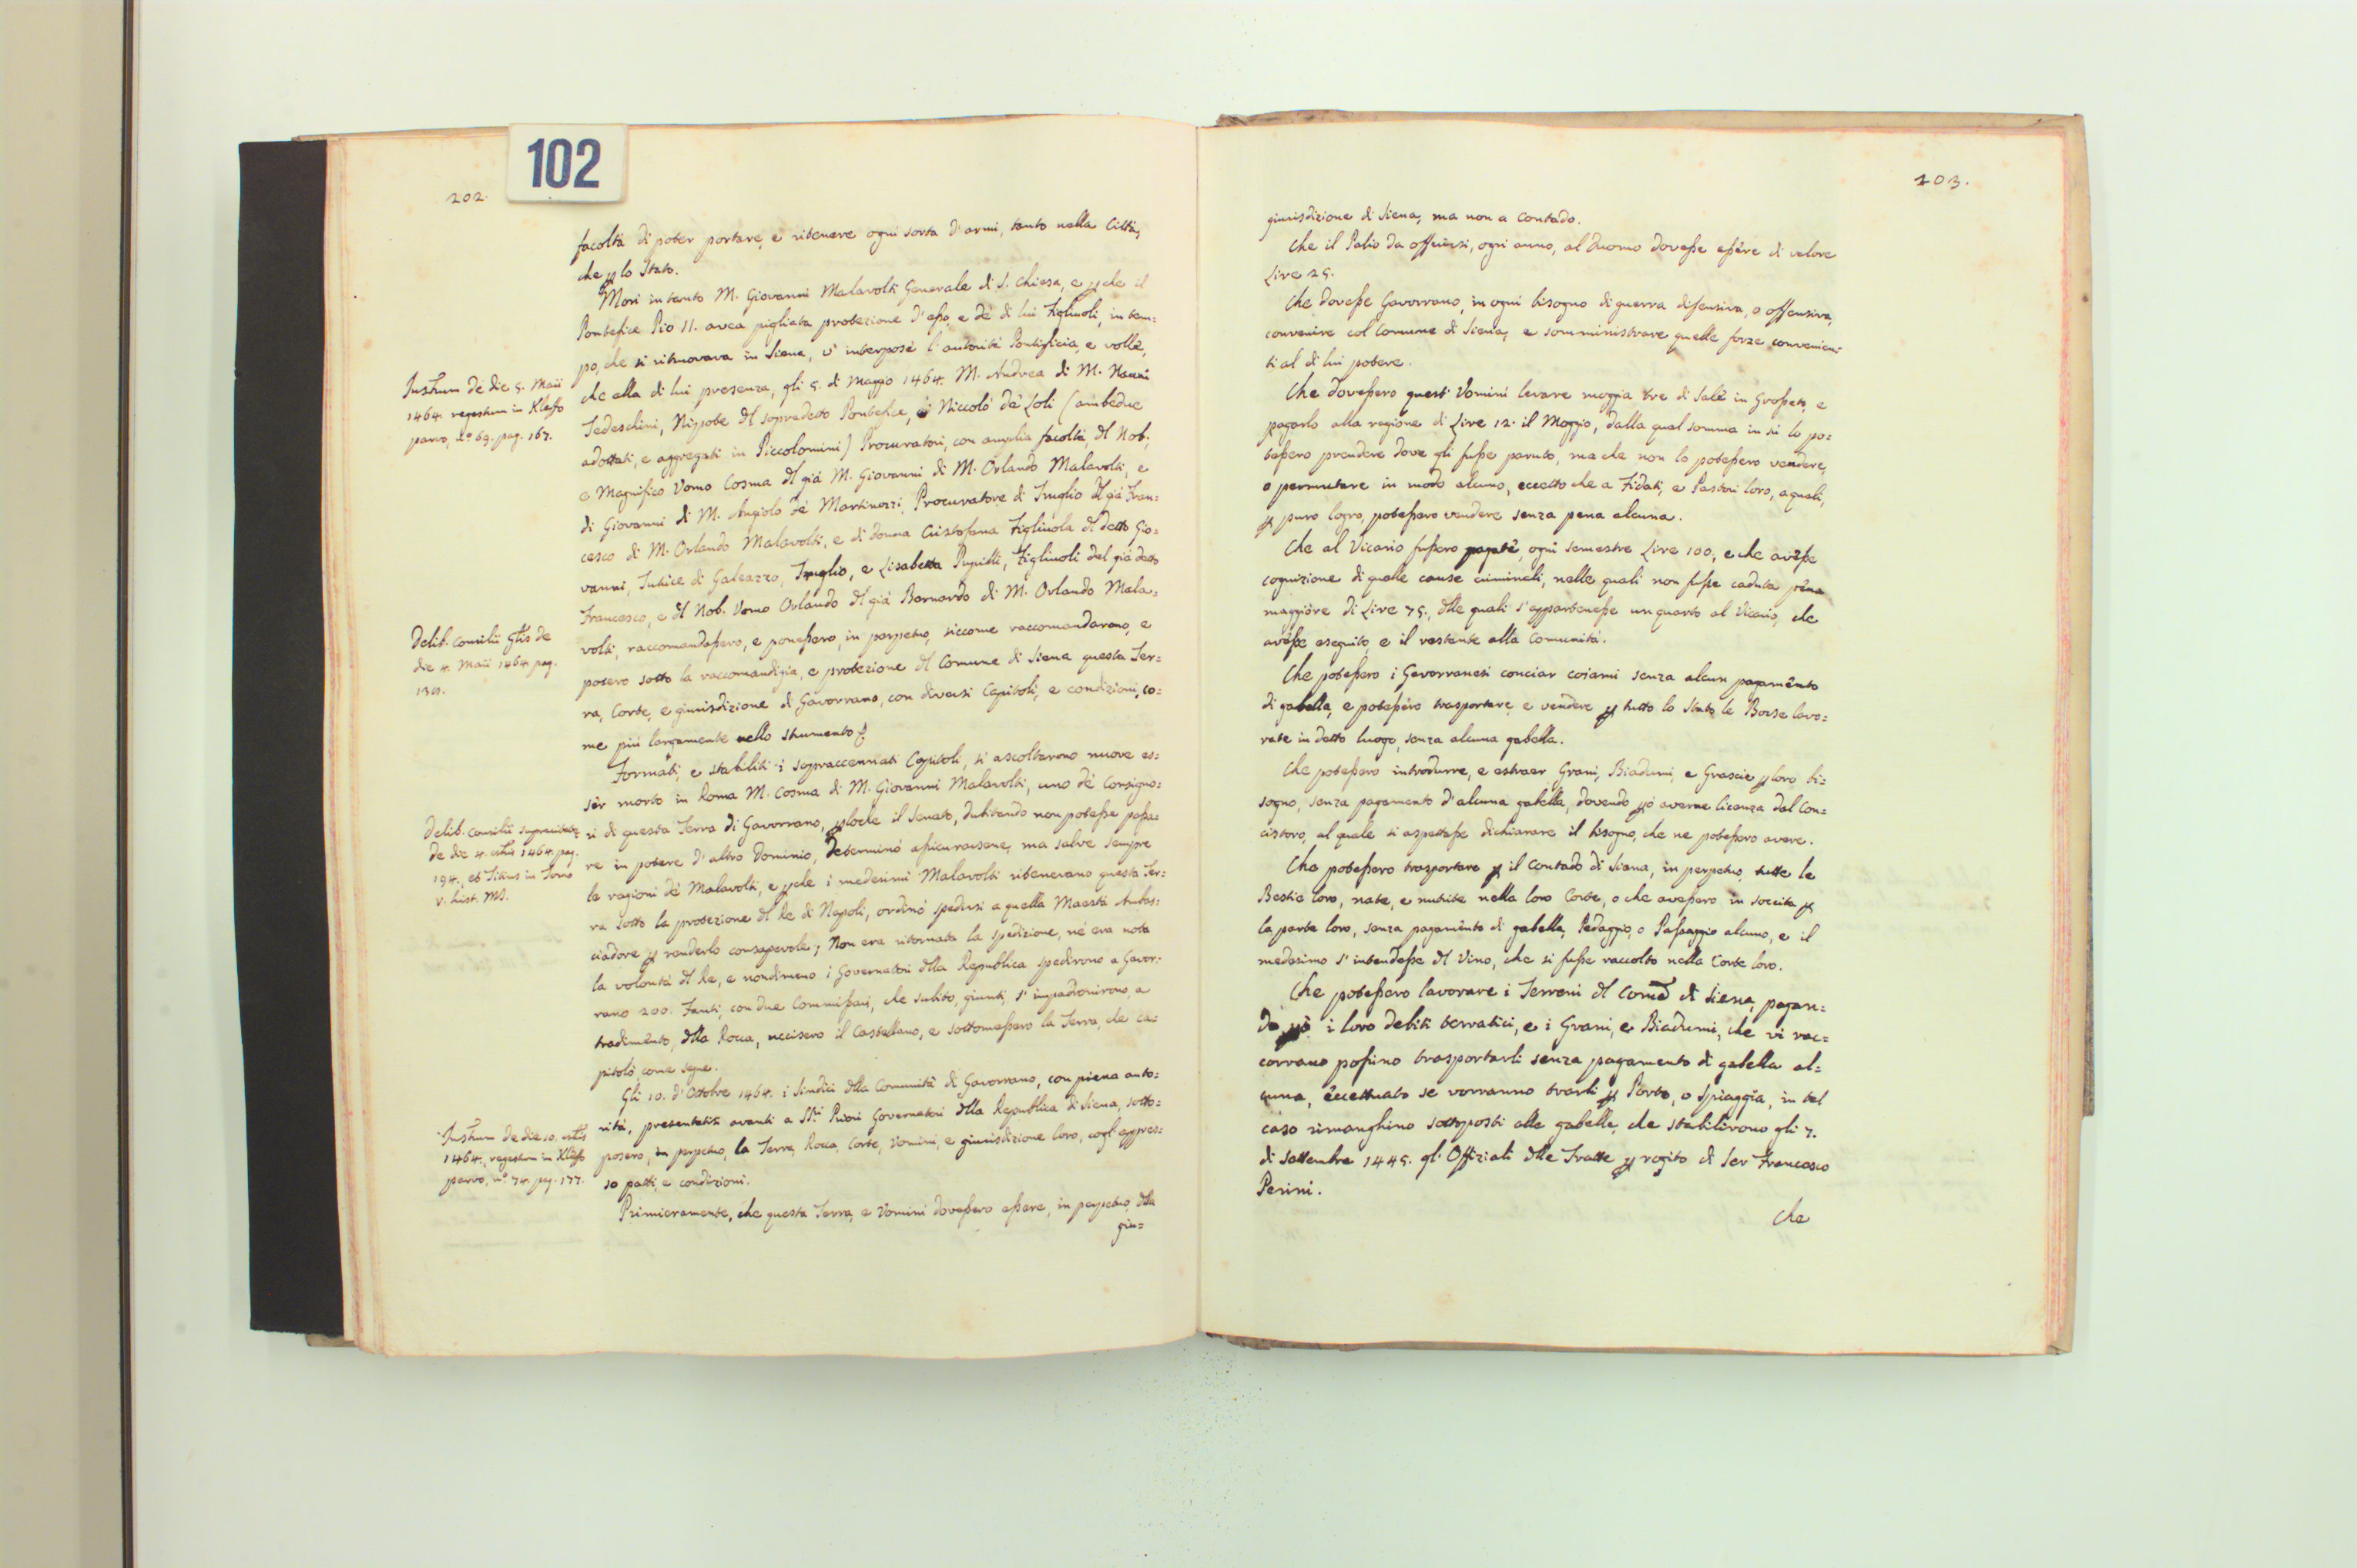 102
202.
facoltà di poter portare, e ritenere ogni sorta d'armi, tanto nella Città,
che p lo Stato.
Morì intanto M. Giovanni Malavolti Generale di S. Chiesa, e pche il
Pontefice Pio II. avea pigliata protezione d'esso, e de di lui Figliuoli, in tem=
po, che si ritruovava in Siena, v' interpose l'autorità Pontificia, e volle,
che alla di lui presenza, gli 5. di Maggio 1464. M. Andrea di M. Nanni
Tedeschini, Nipote del sopradetto Pontefice, e Niccolò de Loli (ambedue
adottati, e aggregati in Piccolomini) Procuratori, con amplia facoltà, dl Nob.,
e Magnifico Vomo Cosma dl già M. Giovanni di M. Orlando Malavolti, e
di Giovanni di M. Angiolo de Martinozzi, Procuratore di Truglio dl già Fran=
cesco di M. Orlando Malavolti, e di donna Cristofana Figliuola dl detto Gio=
vanni, Tutrice di Galeazzo, Truglio, e Lisabetta Pupilli, Figliuoli del già detto
Francesco, e dl Nob. Vomo Orlando dl già Bernardo di M. Orlando Mala=
volti, raccomandassero, e ponessero, in perpetuo, siccome raccomandarono, e
posero sotto la raccomandigia, e protezione dl Comune di Siena questa Ter=
ra, Corte, e giurisdizione di Gavorrano, con diversi Capitoli, e condizioni, co=
me più largamente nello strumento p.
Formati, e stabiliti i sopraccennati Capitoli, si ascoltarono nuove es=
sèr morto in Roma M. Cosma di M. Giovanni Malavolti, uno de Consigno=
ri di questa Terra di Gavorrano, ploche il Senato, dubitando non potesse passa=
re in potere d'altro Dominio, determinò assicurarsene, ma salve sempre
le ragioni de Malavolti, e pche i medesimi Malavolti ritenevano questa Ter=
ra sotto la protezione dl Re di Napoli, ordinò spedirsi a quella Maestà Ambas=
ciadore p renderlo consapevole; Non era ritornata la spedizione, nè era nota
la volontà dl Re, e nondimeno i Governatori dlla Republica spedirono a Gavor=
rano 200. Fanti, con due Commissari, che subito, giunti, s' impadronirono, a
tradimento, dlla Rocca, uccisero il Castellano, e sottomessero la Terra, che ca=
pitolò come segue.
Gli 10. d'Ottobre 1464. i Sindici dlla Comunità di Gavorrano, con piena auto=
rità, presentatisi avanti a SSri Priori Governatori dlla Republica di Siena, sotto=
posero, in perpetuo, la Terra, Rocca, Corte, Vomini, e giurisdizione loro, cogl'appres=
so patti, e condizioni.
Primieramente, che questa Terra, e Vomini dovessero essere, in perpetuo, dlla
giu=
Instrum de die 5. Maii
1464. regestum in Kleffo
parvo, no 69. pag. 167.
Delib. Consilii Gtlis de
die 4. Maii 1464. pag.
130.
de die 4. 1464. pag.
194., et Titius in Tomo
V. hist. MS.
Instrum de die 10.
1464., regestum in Kleffo
parvo, no. 74. pag. 177.
203.
giurisdizione di Siena, ma non a Contado.
Che il Palio da offerirsi, ogni anno, al Duomo dovesse essere di valore
Lire 25.
Che dovesse Gavorrano, in ogni bisogno di guerra difensiva, o offensiva,
convenire col Comune di Siena, e somministrare quelle forze convenien=
ti al di lui potere.
Che dovessero questi Vomini levare moggia tre di Sale in Grosseto, e
pagarlo alla ragione di Lire 12. il Moggio, dalla qual somma in sù lo po=
tessero prendere dove gli fusse paruto, ma che non lo potessero vendere,
o permutare in modo alcuno, eccetto che a Fidati, e Pastori loro, a quali,
p puro logro, potessero vendere senza pena alcuna.
Che al Vicario fussero pagate, ogni semestre Lire 100, e che avesse
cognizione di quelle cause criminali, nelle quali non fusse caduta pena
maggiore di Lire 75., dlle quali s'appartenesse un quarto al Vicario, che
avesse eseguito, e il restante alla Comunità.
Che potessero i Gavorranesi conciar cojami senza alcun pagamento
di gabella, e potessero trasportare, e vendere p tutto lo Stato le Borse lavo=
rate in detto luogo, senza alcuna gabella.
Che potessero introdurre, e estraer Grani, Biadumi, e Grascie p loro bi=
sogno, senza pagamento d'alcuna gabella, dovendo pò averne licenza dal Con=
cistoro, al quale si aspettasse dichiarare il bisogno, che ne potessero avere.
Che potessero trasportare p il Contado di Siena, in perpetuo, tutte le
Bestie loro, nate, e nutrite nella loro Corte, o che avessero in soccita p
la parte loro, senza pagamento di gabella, Pedaggio, o Passaggio alcuno, e il
medesimo s'intendesse dl Vino, che si fusse raccolto nella Corte loro.
Che potessero lavorare i Terreni dl Come di Siena, pagan=
do pò i loro debiti terratici, e i Grani, e Biadumi, che vi rac=
corrano possino trasportarli senza pagamento di gabella al=
cuna, eccettuato se vorranno trarli p Porto, o Spiaggia, in tal
caso rimanghino sottoposti alle gabelle, che stabilirono gli 7.
di Settembre 1445. gl' Offiziali dlle Tratte p rogito di Ser Francesco
Perini.
Che